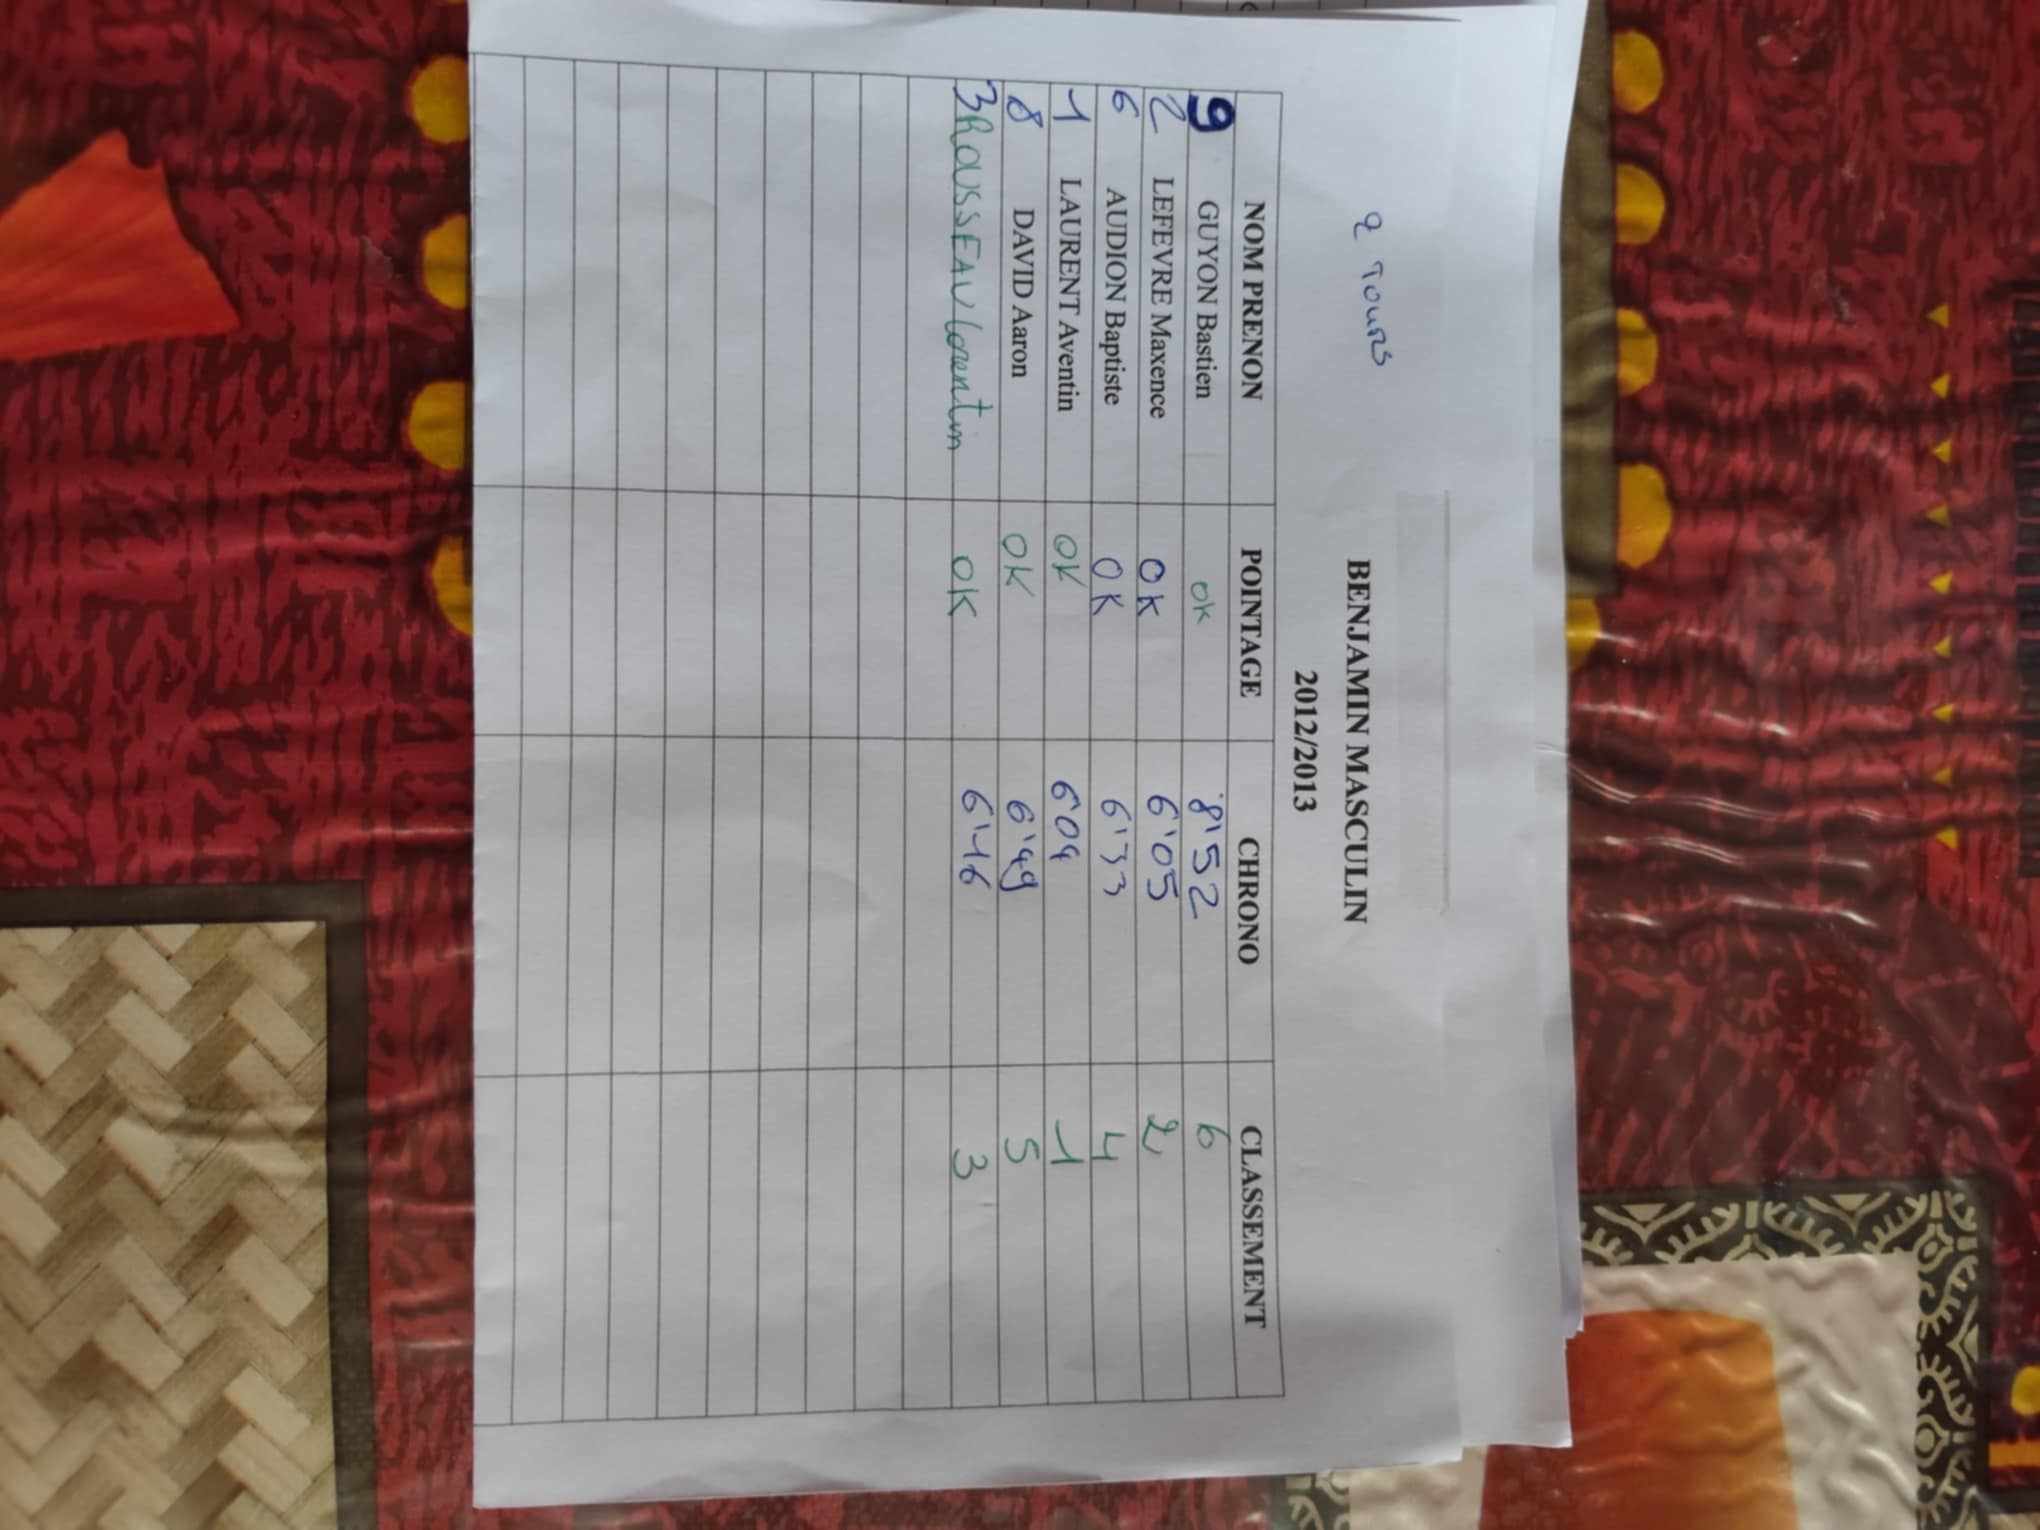 2 TOURS
BENJAMIN MASCULIN
2012/2013
NOM PRENON POINTAGE CHRONO CLASSEMENT
9 GUYON Bastien OK 8'52 6
2 LEFEVRE Maxence OK 6'05 2
6 AUDION Baptiste OK 6'33 4
1 LAURENT Aventin OK 6'04 1
8 DAVID Aaron OK 6'49 5
3 ROUSSEAU Corentin OK 6'16 3